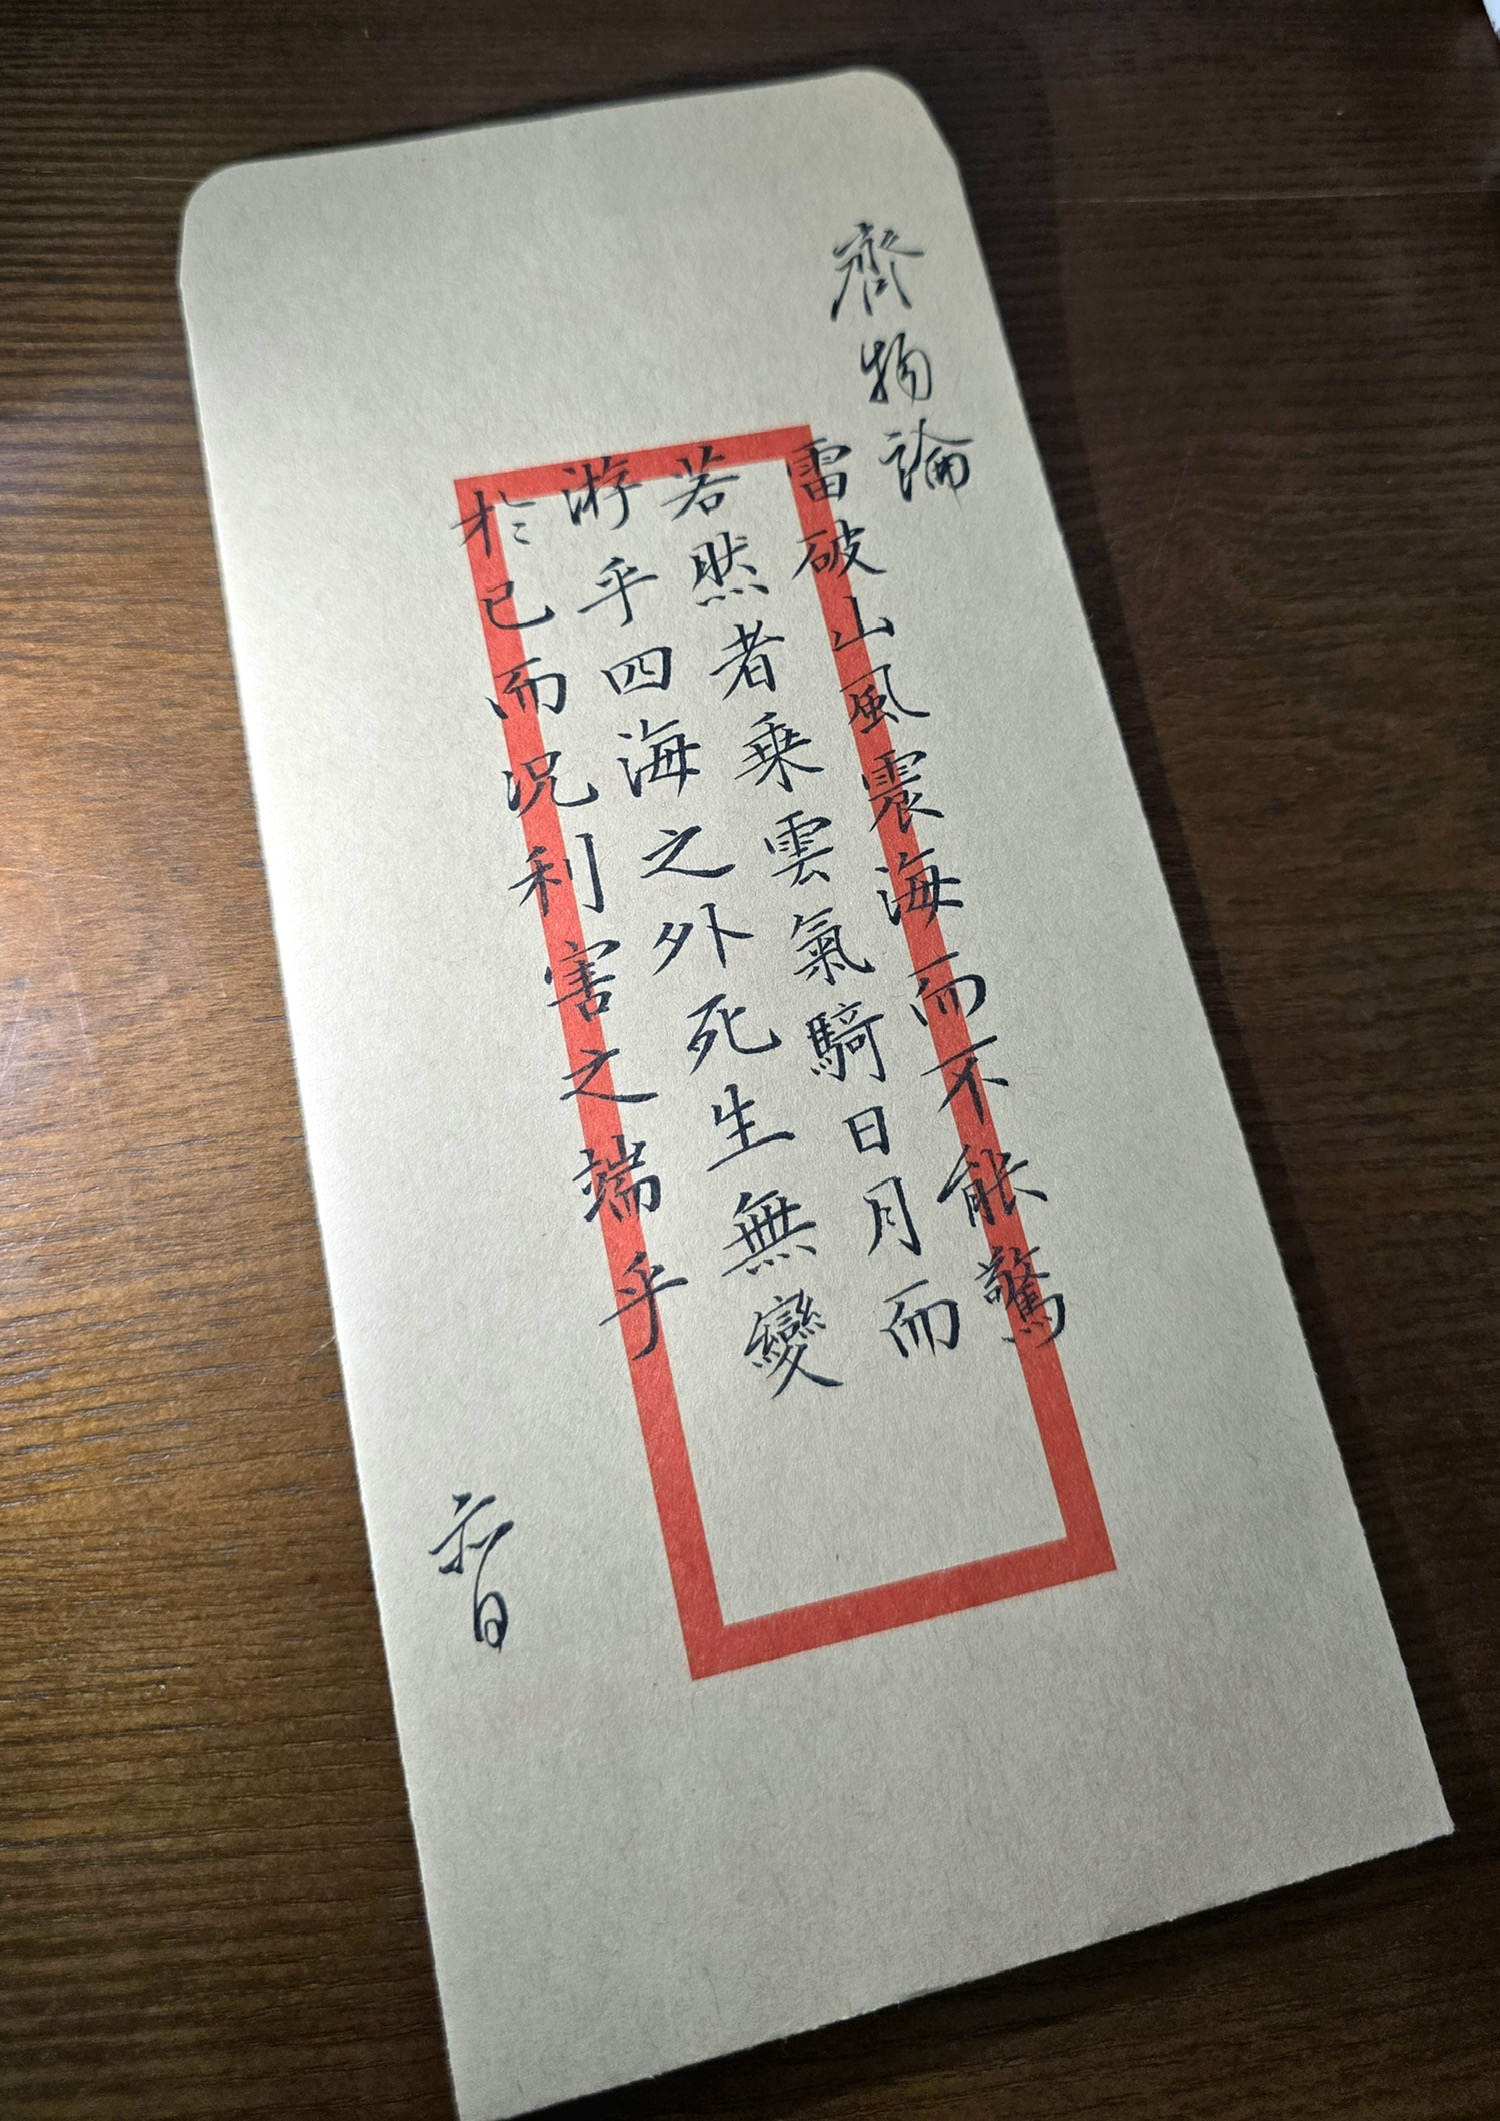 齊物論
雷破山風震海而不能驚
若然者乗雲氣騎日月而
游乎四海之外死生無變
於己而况利害之端乎